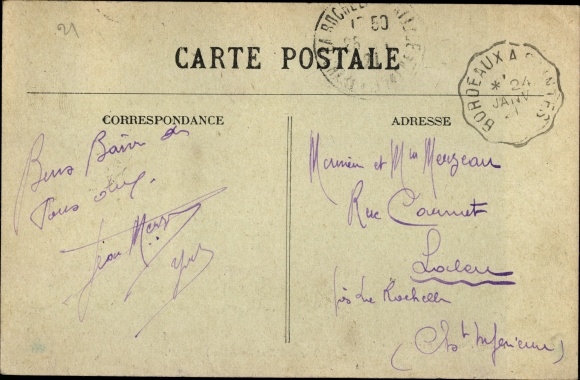 21
CARTE POSTALE
LA ROCHELLE
BORDEAUX A SAINTES
* 24
JANV
CORRESPONDANCE
Bons Baisers de
Tous deux.
Jean
ADRESSE
Monsieur et Mme Menzeau
Rue Carnot
Laleu
près La Rochelle
(Chte Inférieure)